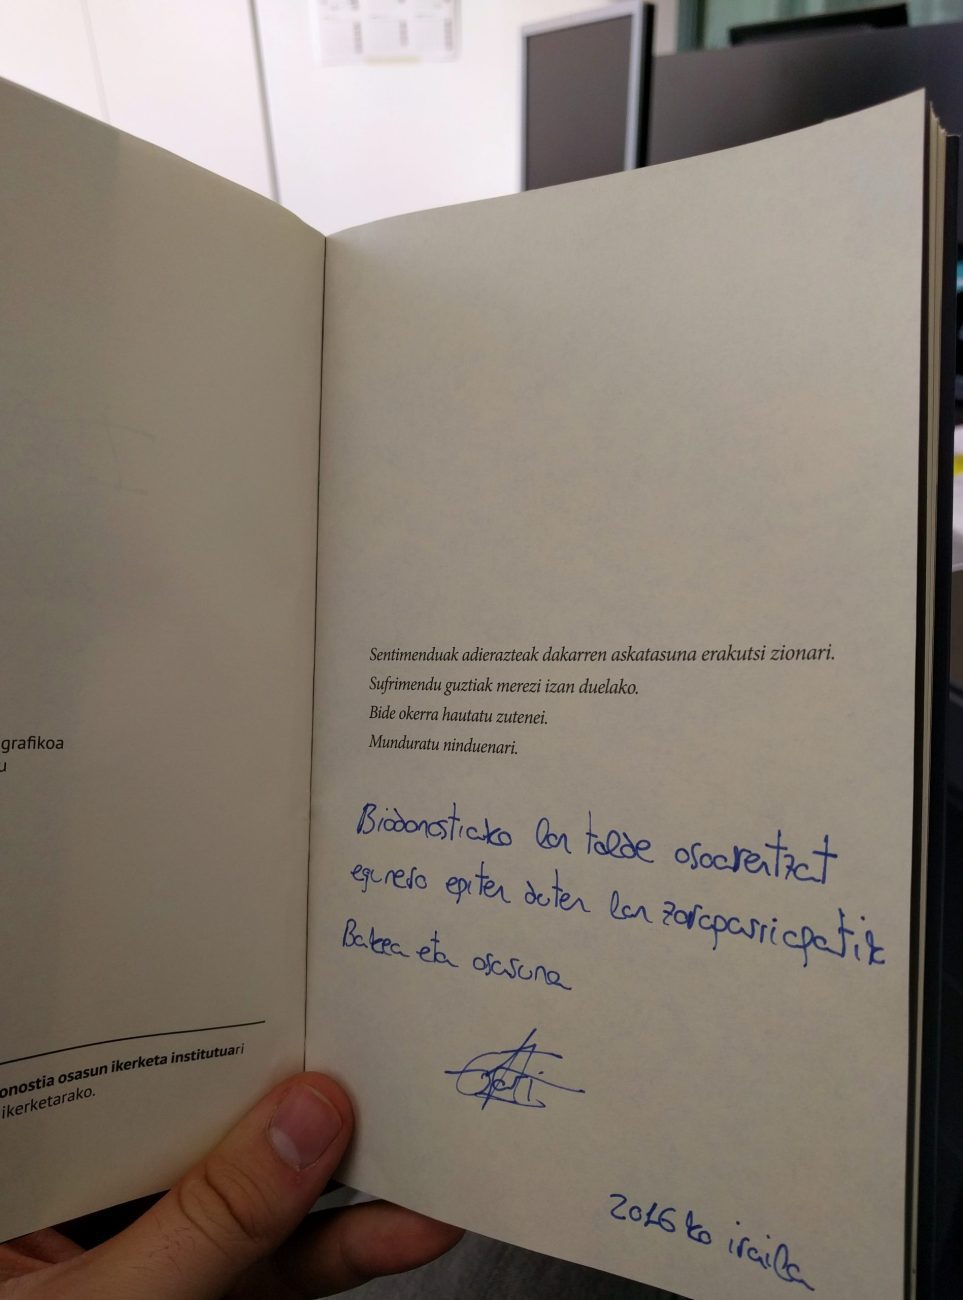 grafikoa
u
onostia osasun ikerketa institutuari
ikerketarako.
Sentimenduak adierazteak dakarren askatasuna erakutsi zionari.
Sufrimendu guztiak merezi izan duelako.
Bide okerra hautatu zutenei.
Munduratu ninduenari.
Biodonostiako lan talde osoarentzat
egunero egiten duten lan zoragarriagatik
Bakea eta osasuna
2016ko iraila